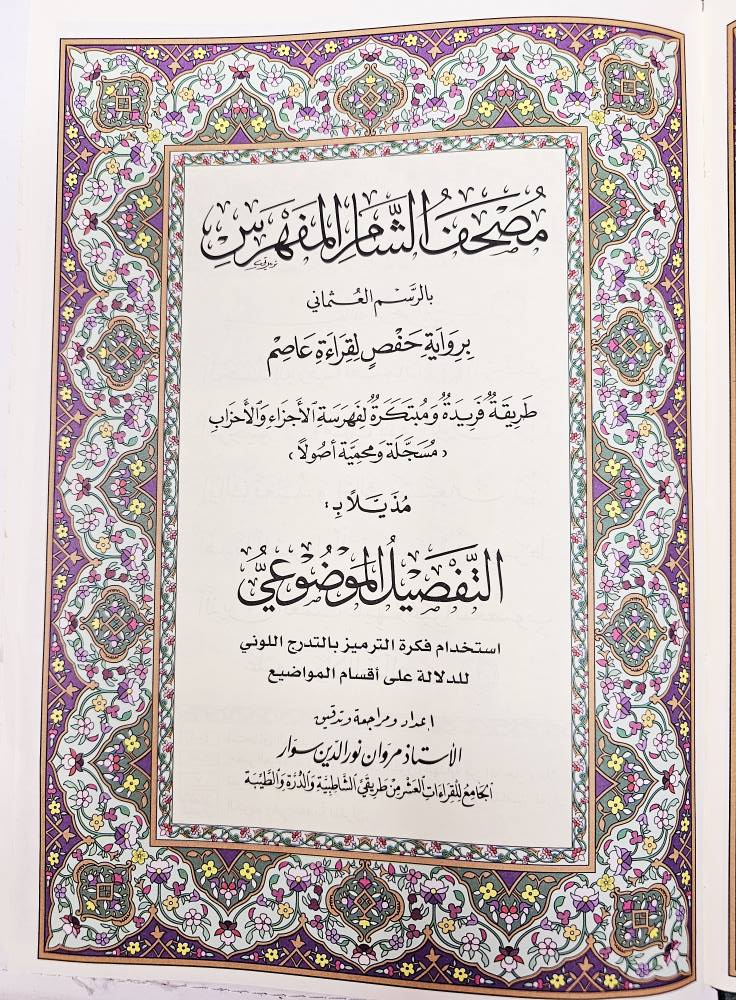 مُصْحَفُ الشَّامِ المُفَهْرَسِ
بالرَّسْمِ العُثماني
بِرِوَايَةِ حَفْصٍ لِقِرَاءَةِ عَاصِمْ
طَرِيقَةٌ فَرِيدَةٌ وَمُبْتَكَرَةٌ لفَهْرَسَةِ الأَجزَاءِ وَالأَحْزَابِ
(مُسَجَّلَة وَمحميَّة أصُولاً)
مُذَيَّلاً بِ:
التَّفْصِيلُ المَوْضُوعِيُّ
استخدام فكرة الترميز بالتدرج اللوني
للدلالة على أقسام المواضيع
إعداد ومراجعة وتدقيق
الأستاذ مروان نور الدين سوار
الجَامِعُ لِلقِرَاءَاتِ العَشْرِ مِنْ طَرِيقَيِ الشَّاطِبِيَّةِ وَالدُّرَّةِ وَالطَّيِّبَة